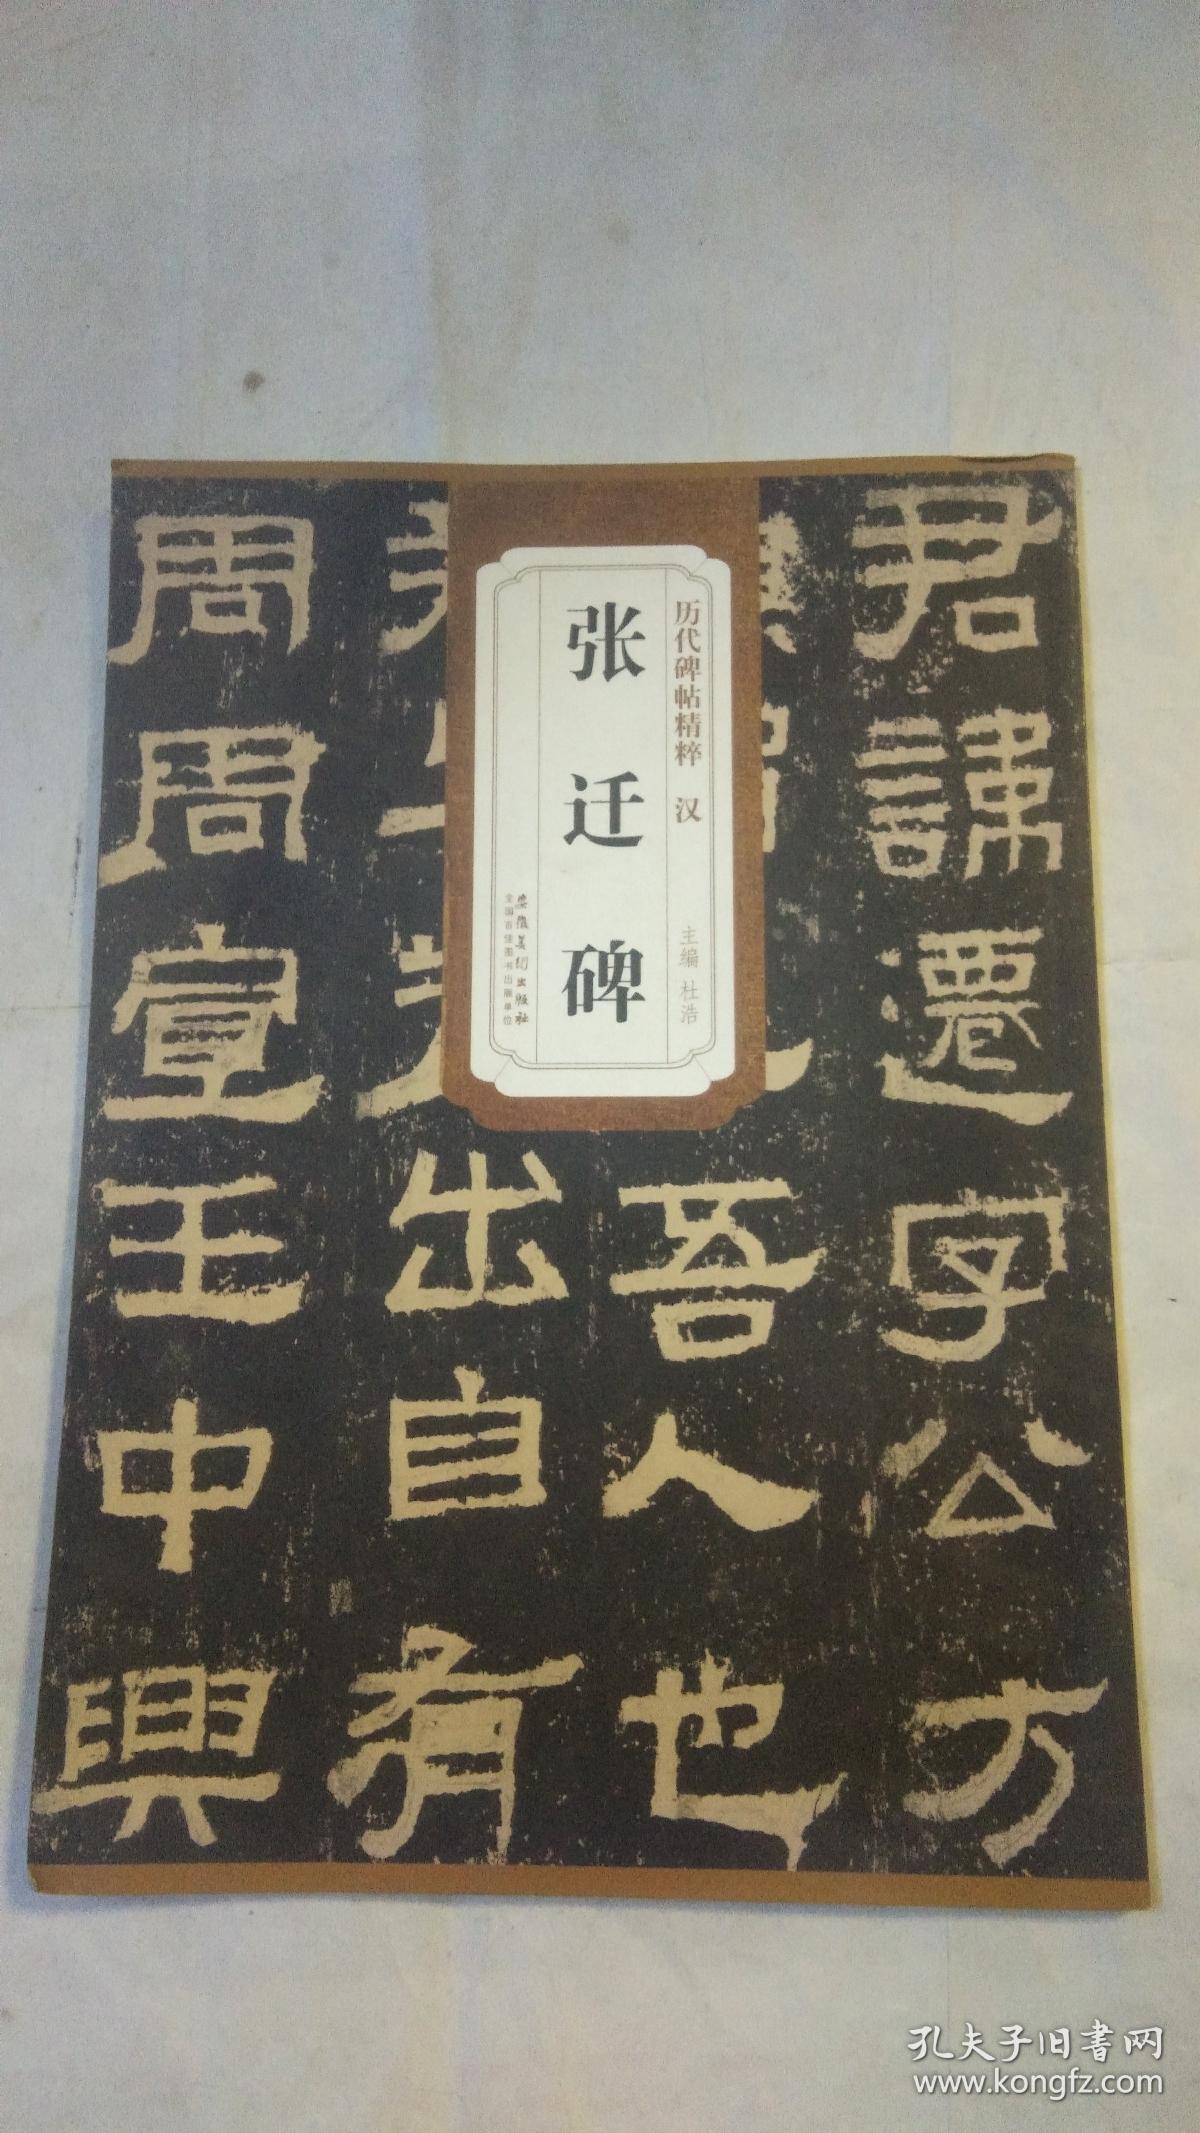 君諱遷字公方
吾人也
出自有
周周宣王中興
历代碑帖精粹 汉
主编 杜浩
张迁碑
安徽美术出版社
全国百佳图书出版单位
孔夫子旧书网
www.kongfz.com